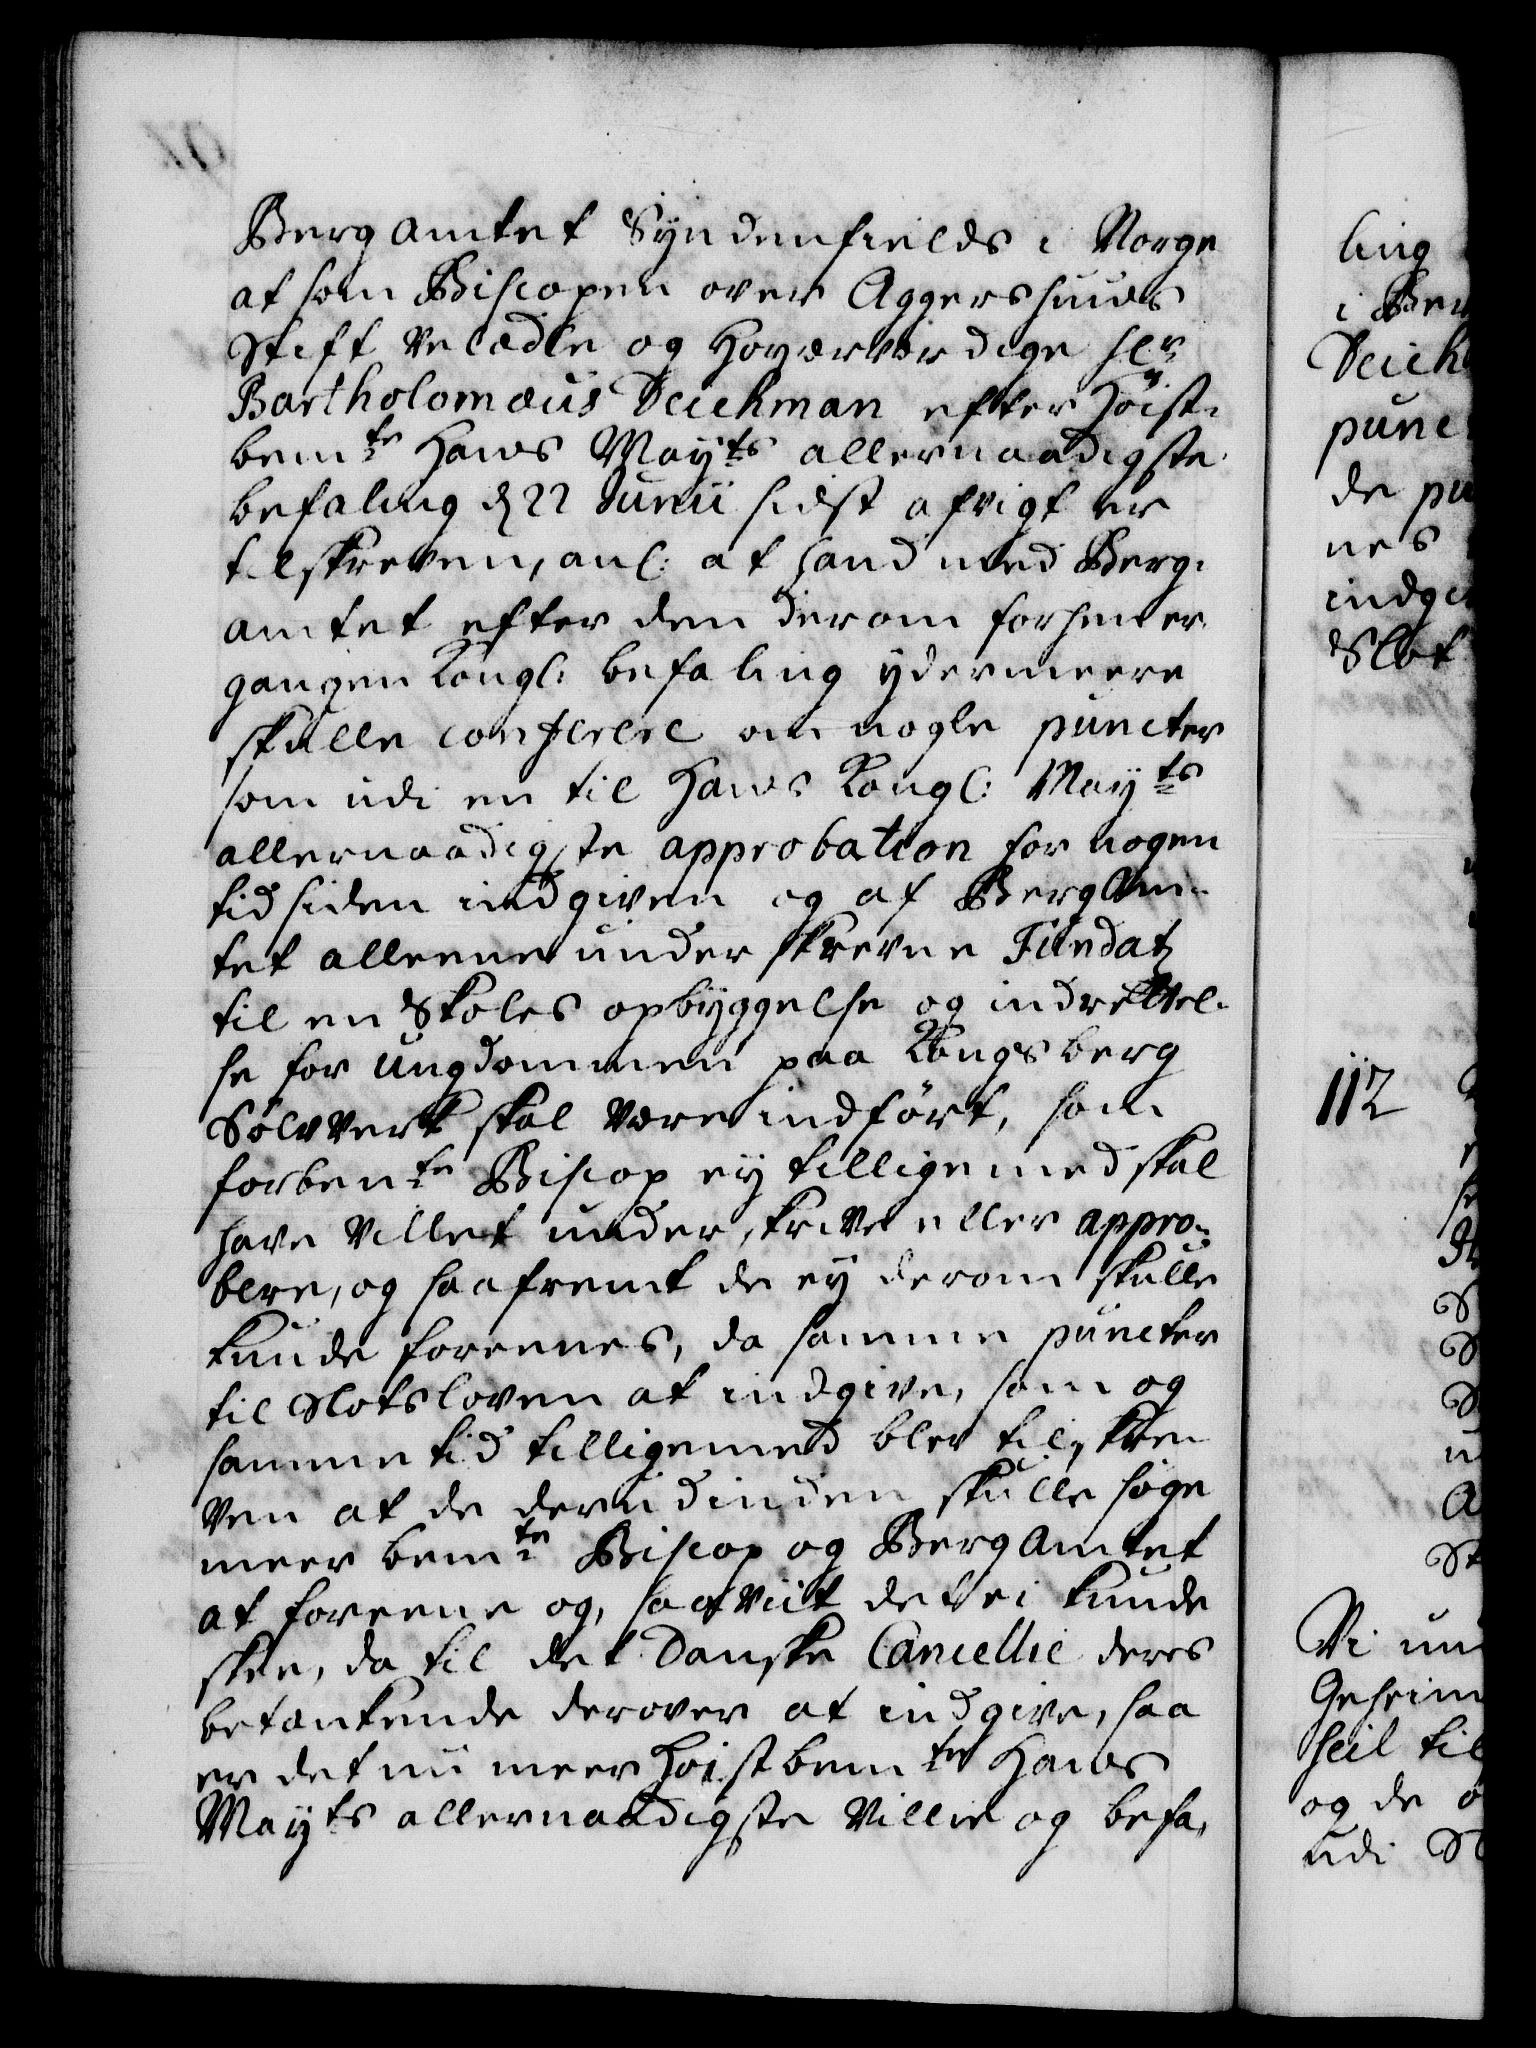 Bergamtet Syndenfields i Norge
at som Biscopen over Aggershuus
Stift Velædle og Høyærværdige Hr
Bartholomæus Deichman efter Høist-
bemte Hans Mayts allernaadigste
befaling d 22 Junii sidst afvigt er
tilskreven, anl: at hand med Berg-
amtet efter den derom forhen er-
gangen Kongl: befaling ydermeere
skulle conferere om nogle puncter
som udi en til Hans Kongl: Mayts
allernaadigste approbation for nogen
tid siden indgiven og af Berg Am-
tet alleene underskrevne Fundatz
til en Skoles opbyggelse og indrettel-
se for Ungdommen paa Kongsberg
Sølvverk skal være indført, som
forbemte Biscop ey tillige med skal
have villet underskrive eller appro-
bere, og saafremt de ey derom skulle
kunde foreenes, da samme puncter
til Slotsloven at indgive, som og
samme tid tilligemed blev tilskre
ven at de derudinden skulle søge
meerbemte Biscop og BergAmtet
at foreene og, saavit det ei kunde
skee, da til det Danske Cancellie deres
betænkende derover at indgive, saa
er det nu meer Høistbemte Hans
Mayts allernaadigste Villie og befa-
ling
i Ber
Deich
punc
de pu
nes
indgi
Slot
112
Vi un
Geheim
heil til
og de
udi